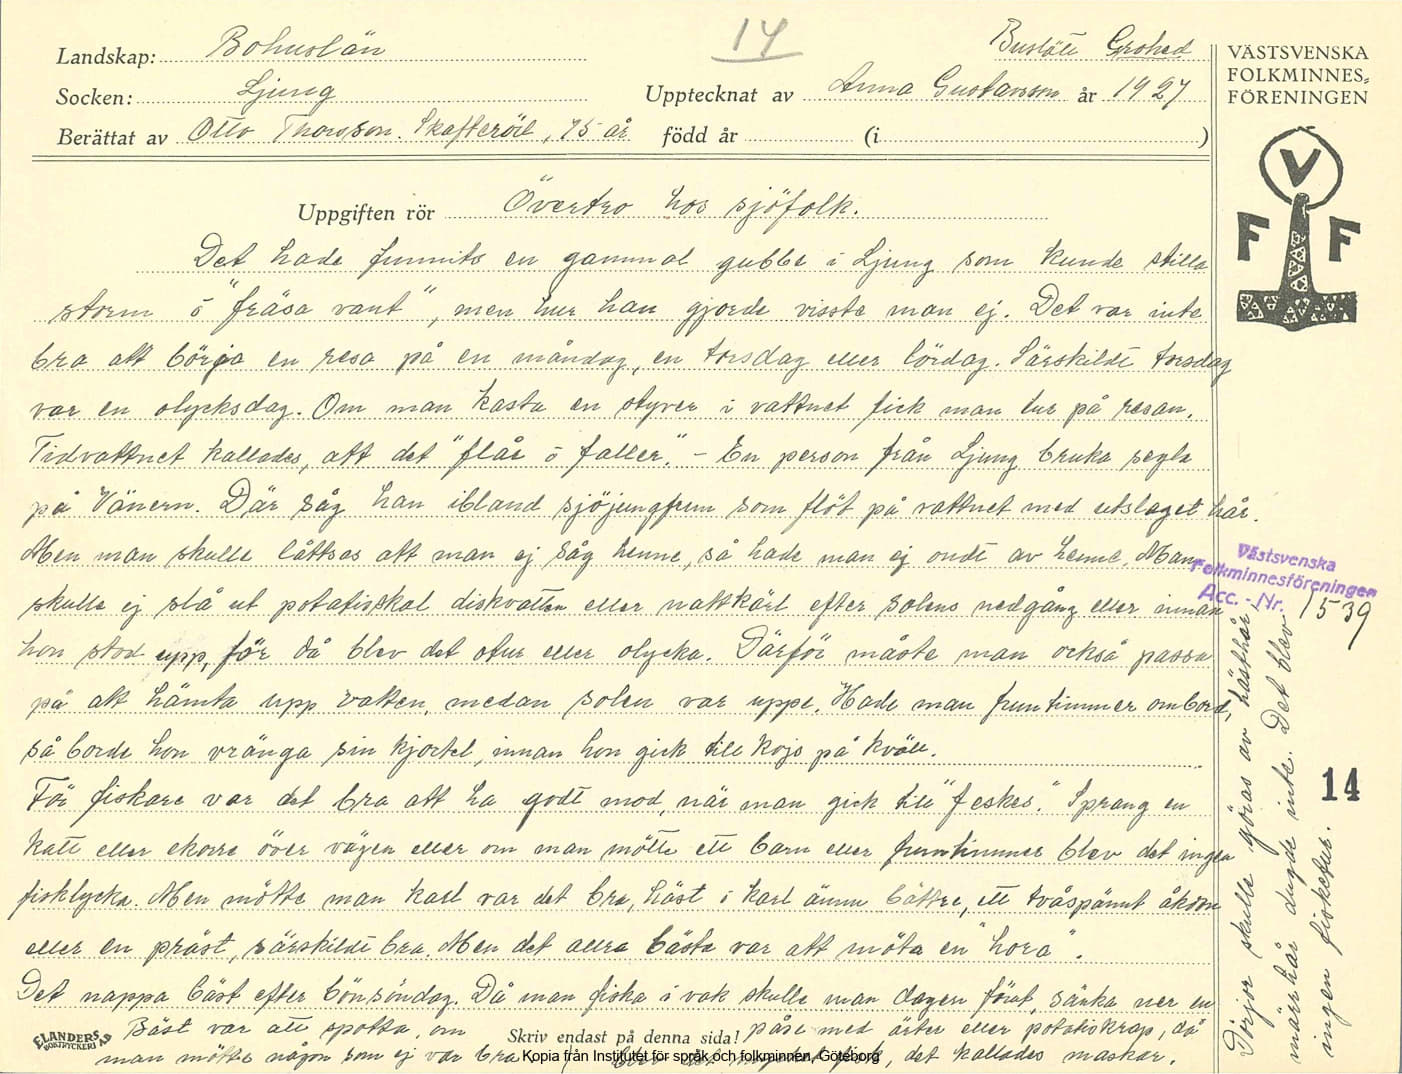 14
Landskap: Bohuslän
Socken: Ljung
Berättat av Otto Thorsson. Skafteröd, 75 år
Grohed
Upptecknat av Anna Gustavsson år 1927
född år (i )
VÄSTSVENSKA
FOLKMINNES-
FÖRENINGEN
V
F F
Uppgiften rör Övertro hos sjöfolk.
Det hade funnits en gammal gubbe i Ljung som kunde stilla
storm o "fräsa vant", men hur han gjorde visste man ej. Det var inte
bra att börja en resa på en måndag, en torsdag eller lördag. Särskildt torsdag
var en olycksdag. Om man kasta en styver i vattnet fick man tur på resan.
Tidvattnet kallades, att det "flår o faller." – En person från Ljung bruka segla
på Vänern. Där såg han ibland sjöjungfrun som flöt på vattnet med utslaget hår.
Men man skulle låttsas att man ej såg henne, så hade man ej ondt av henne. Man
skulle ej slå ut potatisskal diskvatten eller nattkärl efter solens nedgång eller innan
hon stod upp, för då blev det otur eller olycka. Därför måste man också passa
på att hämta upp vatten, medan solen var uppe. Hade man fruntimmer ombord,
så borde hon vränga sin kjortel, innan hon gick till kojs på kväll.
För fiskare var det bra att ha godt mod, när man gick till "feskes." Sprang en
katt eller ekorre över vägen eller om man mötte ett barn eller fruntimmer blev det ingen
fisklycka. Men mötte man karl var det bra, häst i karl ännu bättre, ett tvåspännt åkdon
eller en präst, särskildt bra. Men det allra bästa var att möta en "hora".
Det nappa bäst efter bönsöndag. Då man fiska i vak skulle man dagen förut, sänka ner en
påse med ärter eller potatiskrap, då
fisk, det kallades maskar.
Bäst var att spotta, om
man mötte någon som ej var bra
ELANDERS
BOKTRYCKERI AB
Skriv endast på denna sida!
Kopia från Institutet för språk och folkminnen, Göteborg
Västsvenska
Folkminnesföreningen
Acc. - Nr. 1539
14
skulle göras av hästhår,
märrhår dugde inte. Det blev
ingen fisketur.